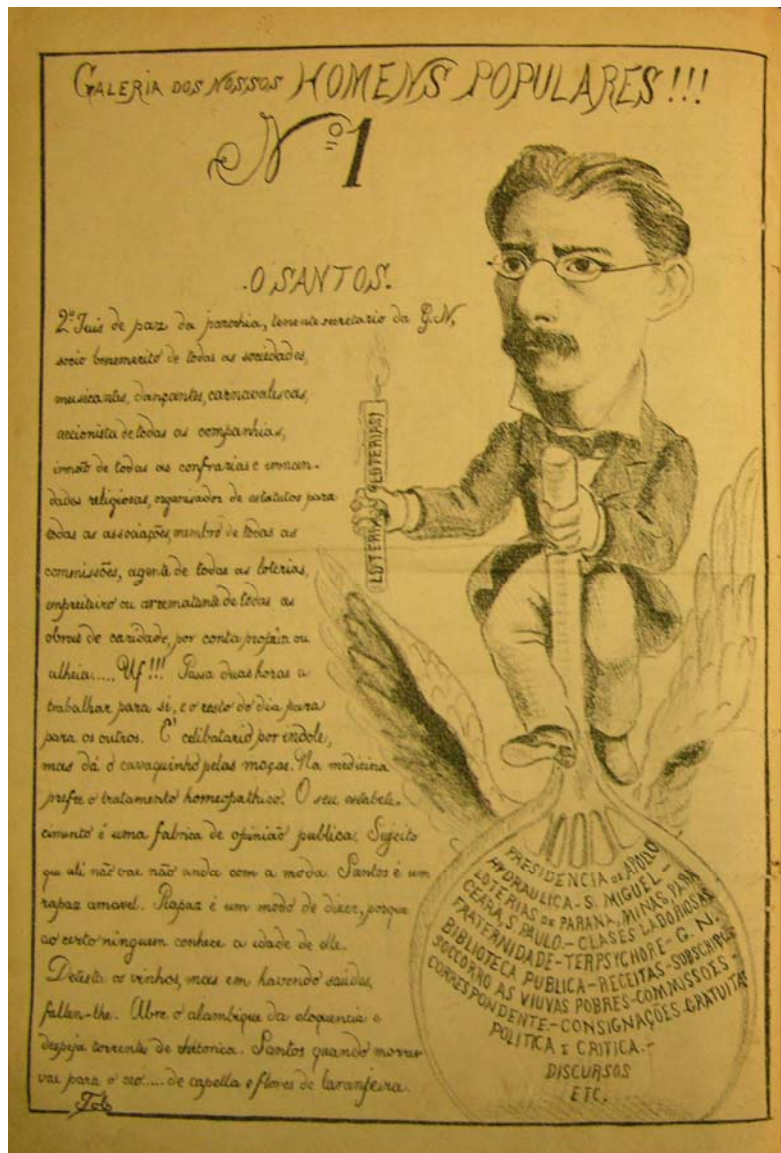 GALERIA DOS NOSSOS HOMENS POPULARES!!!
Nº 1
.O SANTOS.
2º Juis de paz da parochia, tenente secretario da G.N,
socio benemerito de todas as sociedades,
musicantes, dançantes, carnavalescas,
accionista de todas as companhias,
irmão de todas as confrarias e irman-
dades religiosas, organisador de estatutos para
todas as associações, membro de todas as
commissões, agente de todas as loterias,
empreiteiro ou arrematante de todas as
obras de caridade, por conta propria ou
alheia..... Uf!!! Passa duas horas a
trabalhar para si, e o resto do dia para
para os outros. E' celibatario por indole,
mas dá o cavaquinho pelas moças. Na medicina
prefre o tratamento homeopathico. O seu estabele-
cimento é uma fabrica de opinião publica. Sujeito
que ali não vae não anda com a moda. Santos é um
rapaz amavel. Rapaz é um modo de dizer, porque
ao certo ninguem conhece a idade de elle.
Detesta os vinhos, mas em havendo saudes,
fallen-lhe. Abre o alambique da eloquencia e
despeja torrente de rhetorica. Santos quando morrer
vae para o ceo..... de capella e flores de laranjeira.
LOTERIAS LOTERIAS
PRESIDENCIA DE APOLLO
HYDRAULICA - S. MIGUEL -
LOTERIAS DE PARANA, MINAS, PARA
CEARA, S. PAULO - CLASES LABORIOSAS
FRATERNIDADE - TERPSYCHORE - G. N.
BIBLIOTECA PUBLICA - RECEITAS - SUBSCRIPÇÕES
SOCCORRO AS VIUVAS POBRES - COMMISSÕES -
CORRESPONDENTE - CONSIGNAÇÕES GRATUITAS
POLITICA E CRITICA. -
DISCURSOS
ETC.